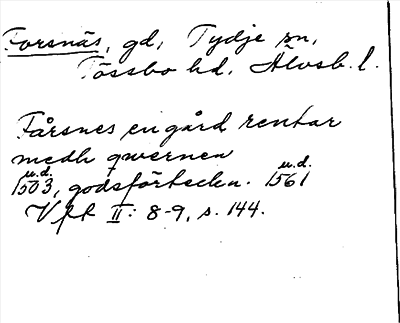 Forsnäs, gd, Tydje sn,
Tössbo hd, Älvsb. l.
Fårsnes en gård rentar
medh qwernen
u.d. u.d.
1503, godsförteckn. 1561
Vft II: 8-9, s. 144.